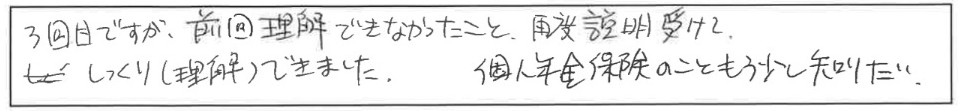 3回目ですが、前回理解できなかったこと、再度説明受けて、
しっくり(理解)できました。 個人年金保険のこともう少し知りたい。